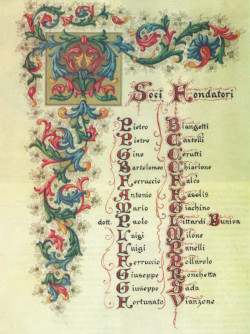 Soci Fondatori
Pietro Biangetti
Pietro Castelli
Gino Cerutti
Bartolomeo Chiarione
Ferruccio
Antonio
Mario Giachino
dott. Paolo Buniva
Luigi Milone
Luigi Panelli
Pollarolo
Giuseppe Ronchetta
Giuseppe Sada
Fortunato Vianzone